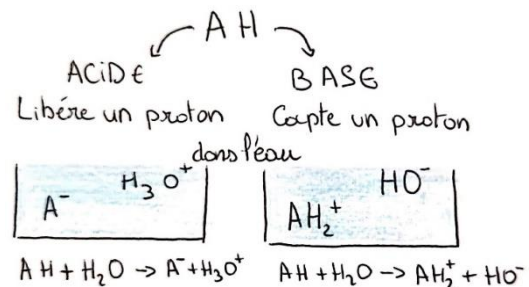 AH
ACIDE
BASE
Libére un proton
Capte un proton
dans l'eau
A⁻
H₃O⁺
AH₂⁺
HO⁻
AH + H₂O → A⁻ + H₃O⁺
AH + H₂O → AH₂⁺ + HO⁻